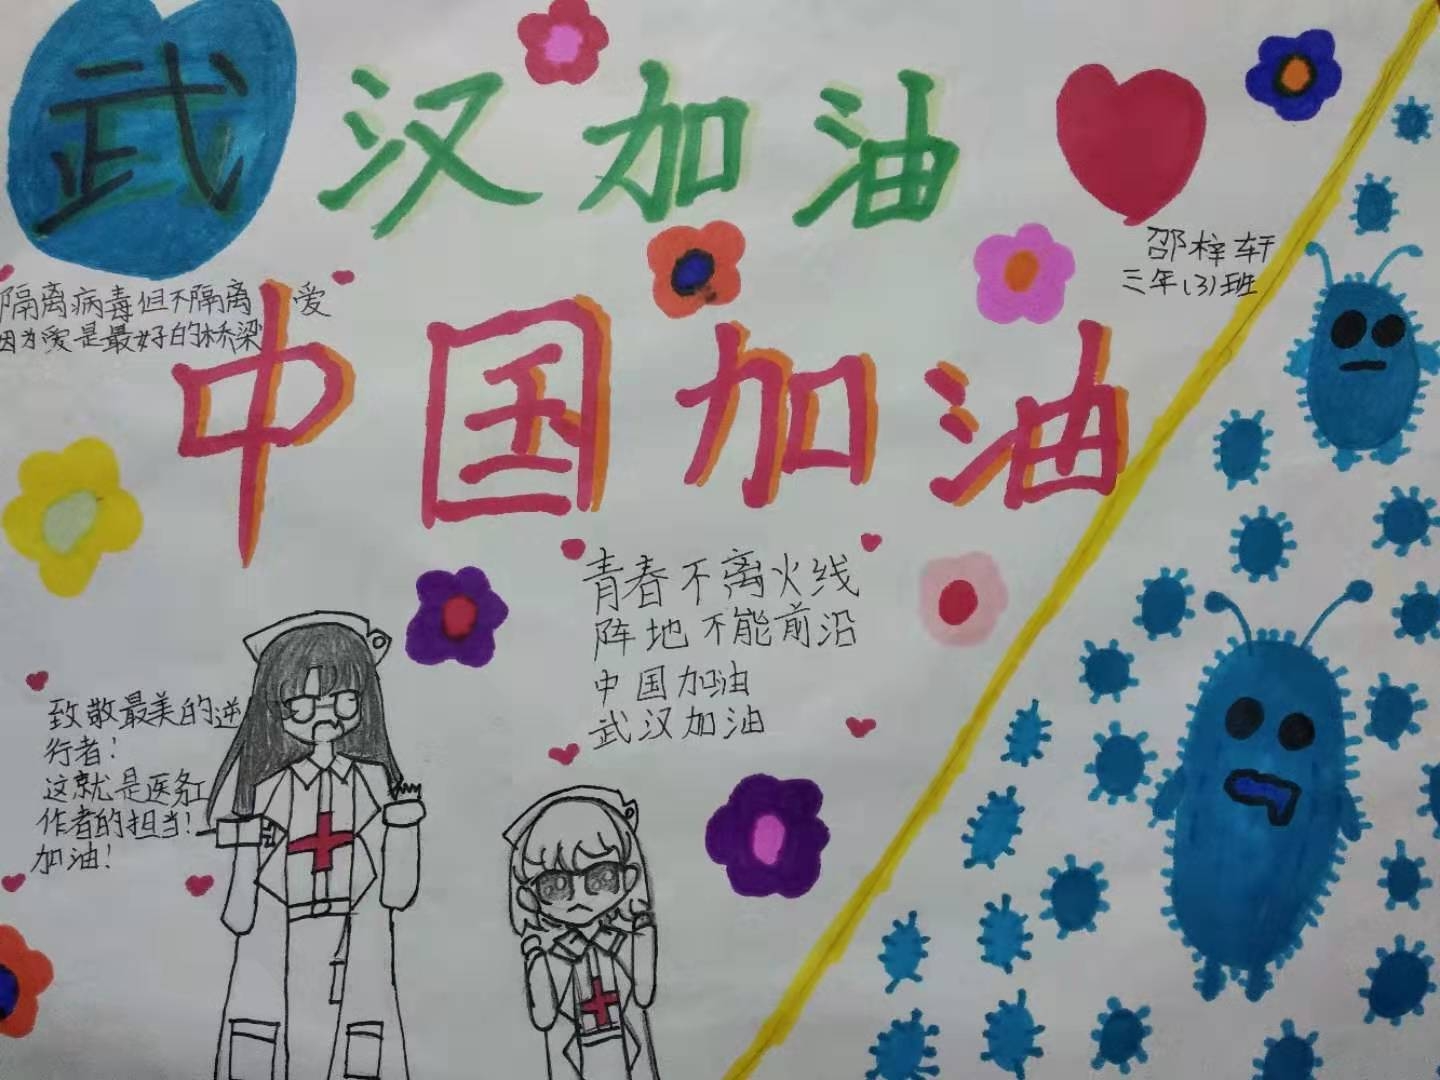 武汉加油
邵梓轩
三年(3)班
隔离病毒但不隔离爱
因为爱是最好的桥梁
中国加油
青春不离火线
阵地不能前沿
中国加油
武汉加油
致敬最美的逆
行者!
这就是医务工
作者的担当!
加油!